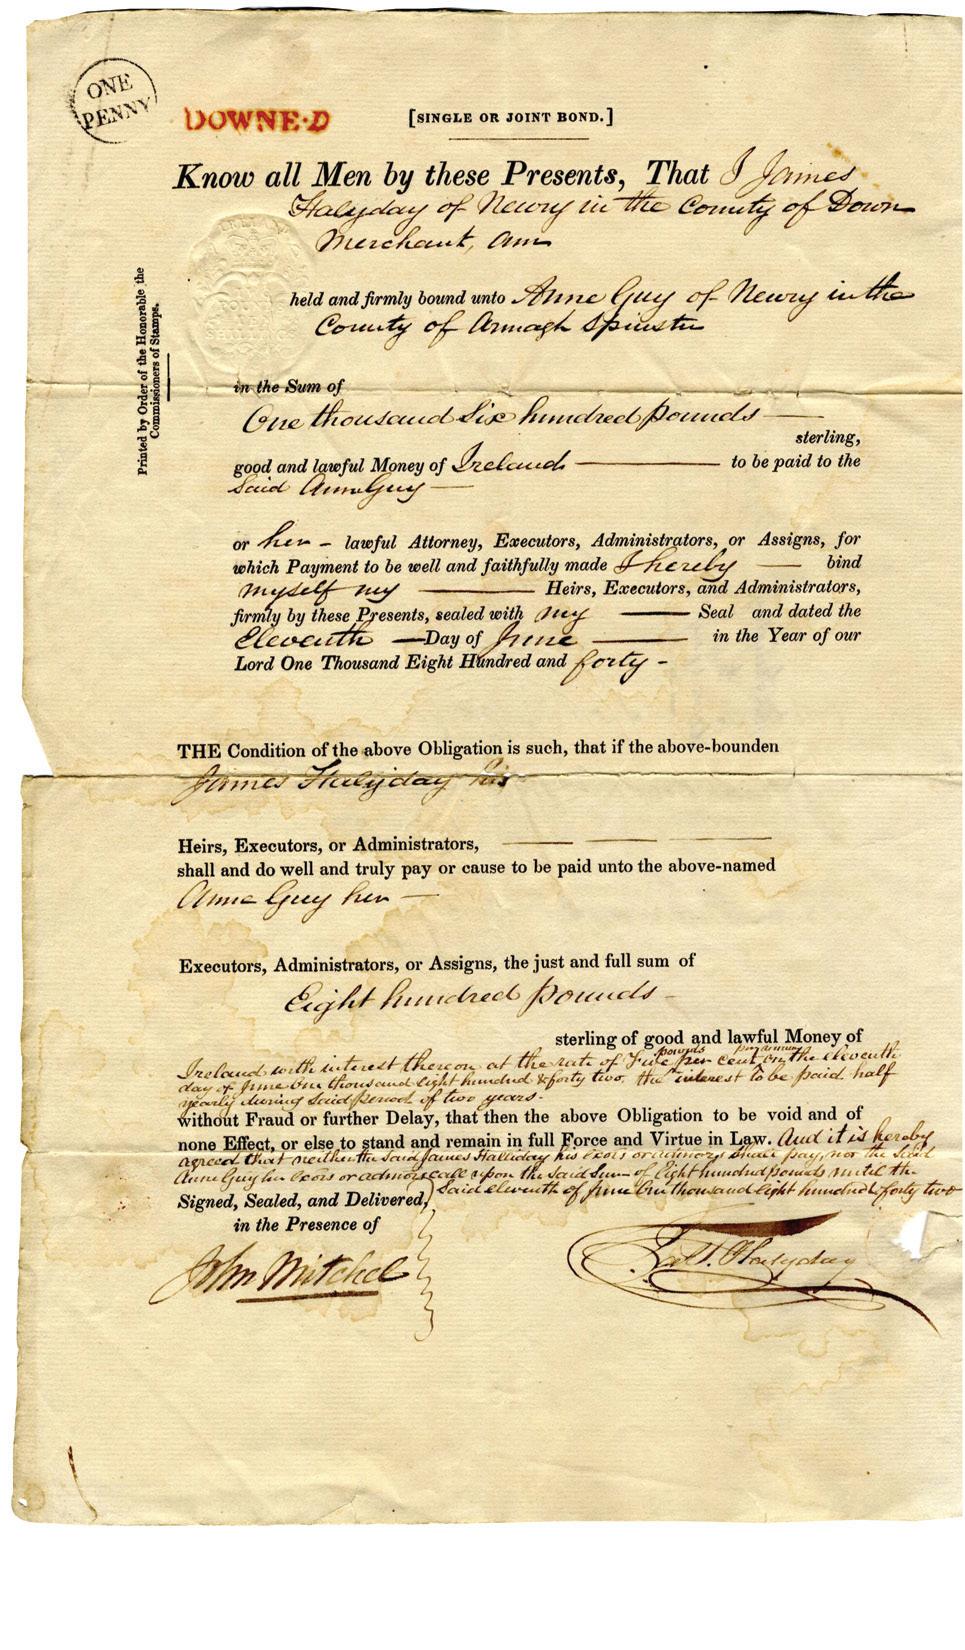 ONE
PENNY
DOWNE·D
[SINGLE OR JOINT BOND.]
Know all Men by these Presents, That I James
Halyday of Newry in the County of Down
Merchant, am
Printed by Order of the Honorable the
Commissioners of Stamps.
held and firmly bound unto Anne Guy of Newry in the
County of Armagh Spinster
in the Sum of
One thousand Six hundred pounds
sterling,
good and lawful Money of Ireland to be paid to the
Said Anne Guy
or her - lawful Attorney, Executors, Administrators, or Assigns, for
which Payment to be well and faithfully made I hereby bind
myself my Heirs, Executors, and Administrators,
firmly by these Presents, sealed with my Seal and dated the
Eleventh Day of June in the Year of our
Lord One Thousand Eight Hundred and forty -
THE Condition of the above Obligation is such, that if the above-bounden
James Halyday his
Heirs, Executors, or Administrators,
shall and do well and truly pay or cause to be paid unto the above-named
Anne Guy her
Executors, Administrators, or Assigns, the just and full sum of
Eight hundred pounds -
sterling of good and lawful Money of
pounds per annum
Ireland with interest thereon at the rate of Five per cent on the eleventh
day of June One thousand eight hundred & forty two, the interest to be paid half
yearly during said period of two years.
without Fraud or further Delay, that then the above Obligation to be void and of
none Effect, or else to stand and remain in full Force and Virtue in Law. And it is hereby
agreed that neither the said James Halliday his exors or admors shall pay, nor the said
Anne Guy her Exors or admors call upon the said Sum of Eight hundred pounds until the
Said eleventh of June One thousand eight hundred forty two
Signed, Sealed, and Delivered,
in the Presence of
John Mitchel
Halyday